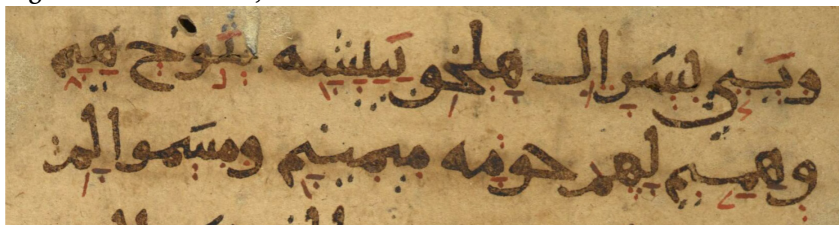 وبني يسرال هلخو بيبشه بتوخ هيم
وهميم لهم حومه ميمينم ومسموالم